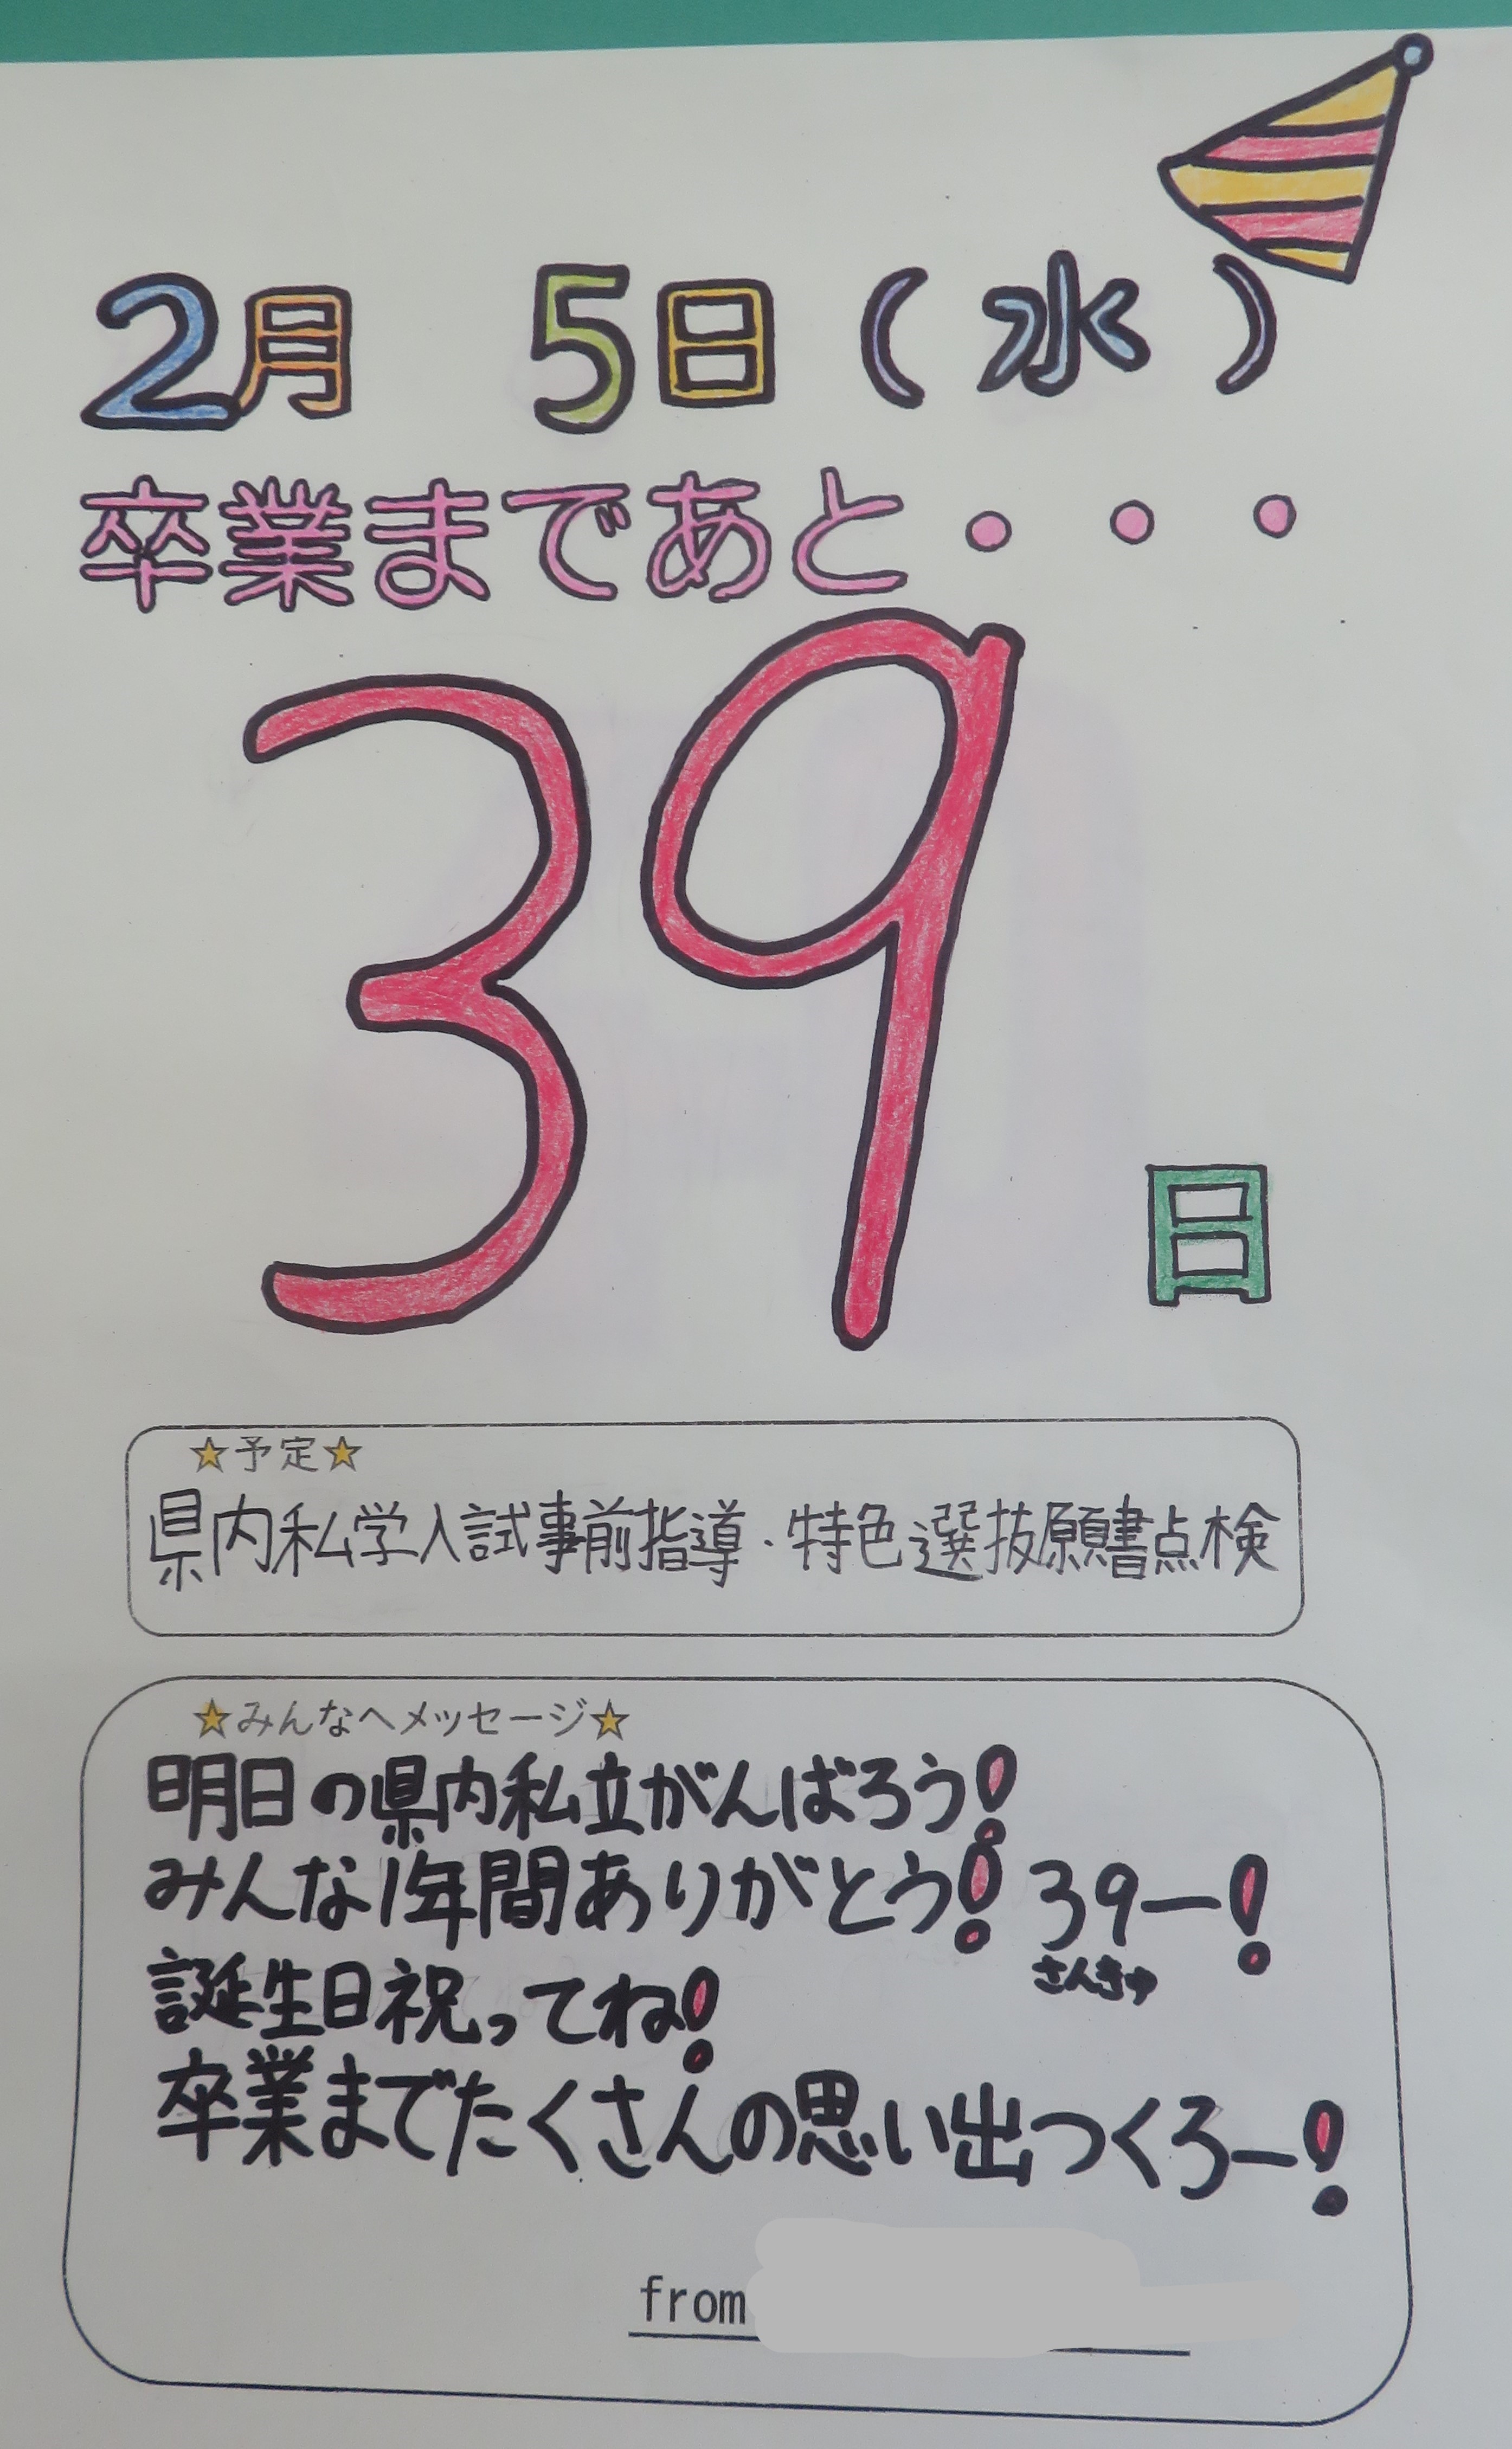 2月 5日(水)
卒業まであと・・・
39日
☆予定☆
県内私学入試事前指導・特色選抜願書点検
☆みんなへメッセージ☆
明日の県内私立がんばろう!
みんな1年間ありがとう! 39ー!
さんきゅ
誕生日祝ってね!
卒業までたくさんの思い出つくろー!
from